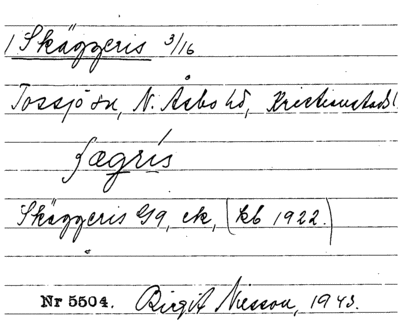 1 Skäggeris 3/16
Tossjö sn, N. Åsbo hd, Kristianstads l
ʃægrís
Skäggeris G9, ek, (kb 1922.)
Nr 5504. Birgit Nilsson, 1943.